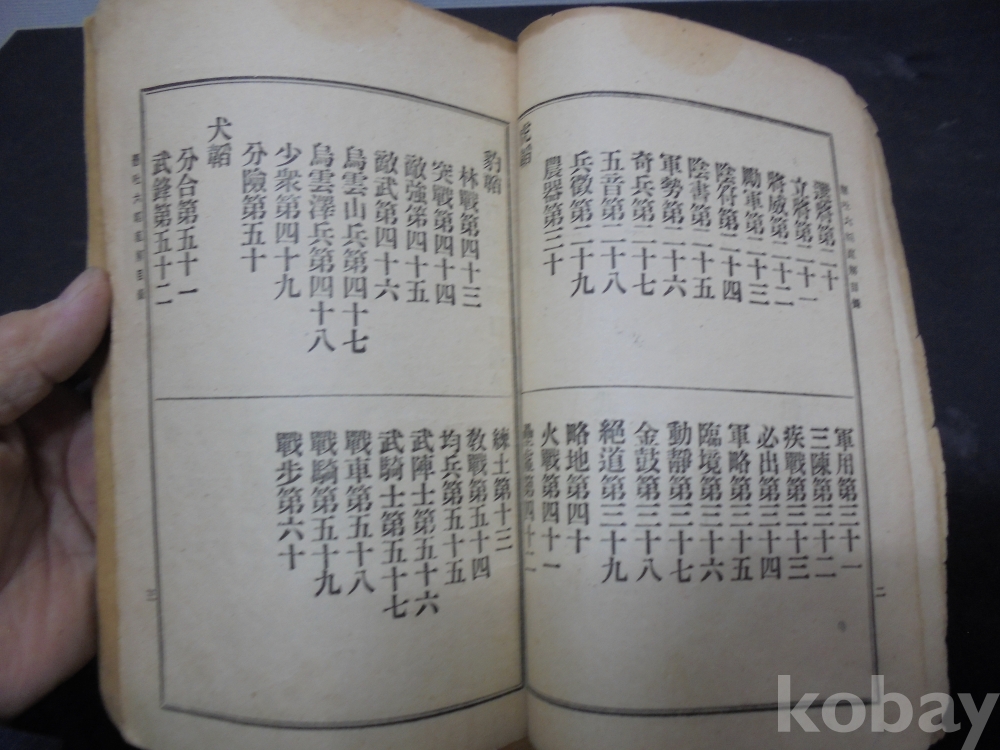 懸吐六韜直解目錄
選將第二十
立將第二十一
將威第二十二
勵軍第二十三
陰符第二十四
陰書第二十五
軍勢第二十六
奇兵第二十七
五音第二十八
兵徵第二十九
農器第三十
虎韜
軍用第三十一
三陳第三十二
疾戰第三十三
必出第三十四
軍略第三十五
臨境第三十六
動靜第三十七
金鼓第三十八
絕道第三十九
略地第四十
火戰第四十一
壘虛第四十二
二
豹韜
林戰第四十三
突戰第四十四
敵強第四十五
敵武第四十六
烏雲山兵第四十七
烏雲澤兵第四十八
少衆第四十九
分險第五十
犬韜
分合第五十一
武鋒第五十二
練士第十三
敎戰第五十四
均兵第五十五
武陣士第五十六
武騎士第五十七
戰車第五十八
戰騎第五十九
戰步第六十
懸吐六韜直解目錄
三
kobay